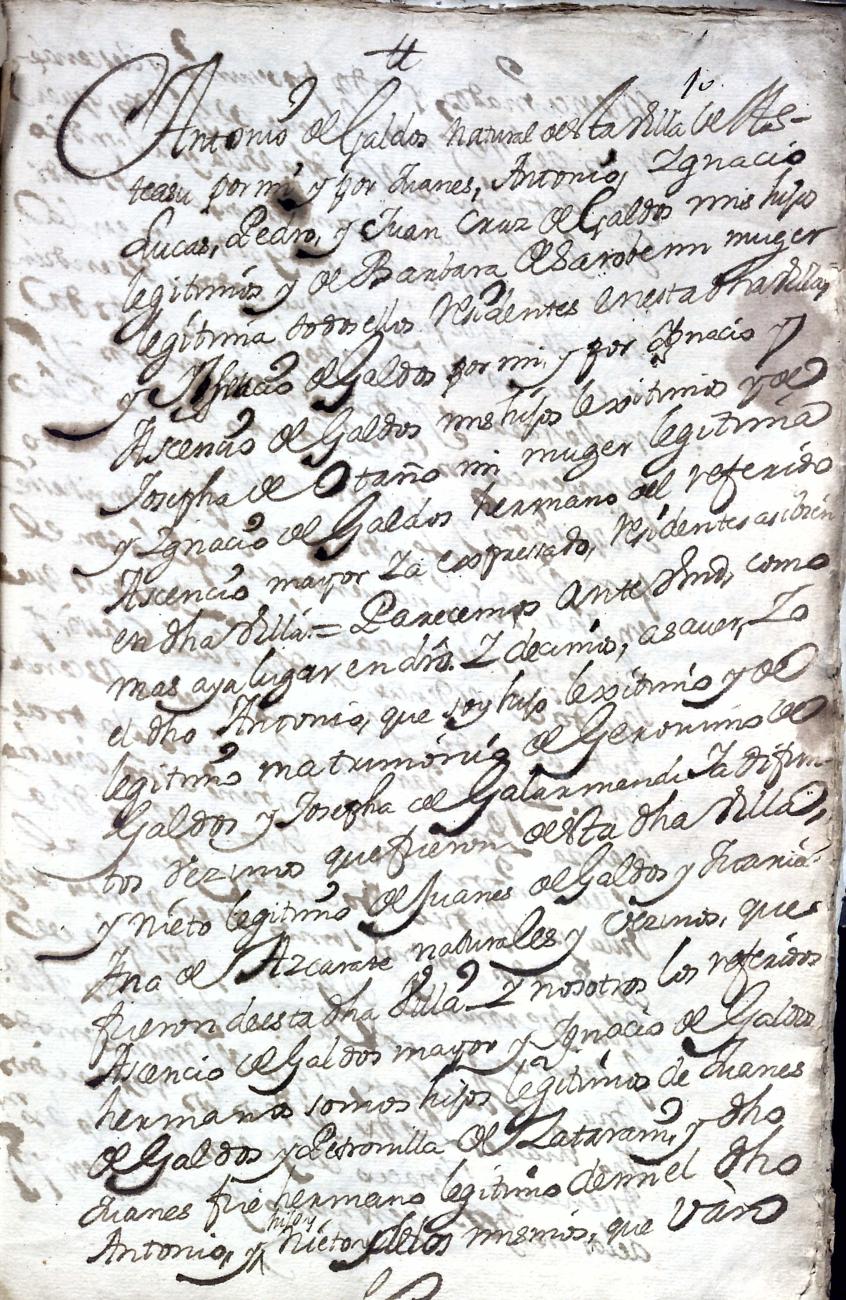 10
Antonio de Galdos natural desta villa de As-
teasu por mi y por Juanes, Antonio, Ignacio
Lucas, Pedro, y Juan Cruz de Galdos mis hijos
legitimos y de Barbara de Sarobe mi muger
legitima todos ellos residentes en esta dha villa,
y Ascencio de Galdos por mi, y por Ignacio y
Ascencio de Galdos mis hijos lexitimos y de
Josepha de Otaño mi muger legitima
y Ignacio de Galdos hermano del referido
Ascencio mayor Ya expressado, residentes asibien
en dha villa = Parecemos ante Vmd, como
mas aya lugar en dro. Y decimos, asaver, Yo
el dho Antonio, que soy hijo lexitimo y de
legitimo matrimonio de Geronimo de
Galdos y Josepha de Galarmendi Ya difun-
tos vezinos que fueron desta dha villa,
y nieto legitimo de Juanes de Galdos y Maria-
Ana de Azcarate naturales y vezinos, que
fueron de esta dha villa Y nosotros los referidos
Ascencio de Galdos mayor y Ignacio de Galdos
hermanos somos hijos legitimos de Juanes
de Galdos y Petronilla de Yatarain, y dho
Juanes fue hermano legitimo de mi el dho
hijo y
Antonio, y nieto de los mismos, que van